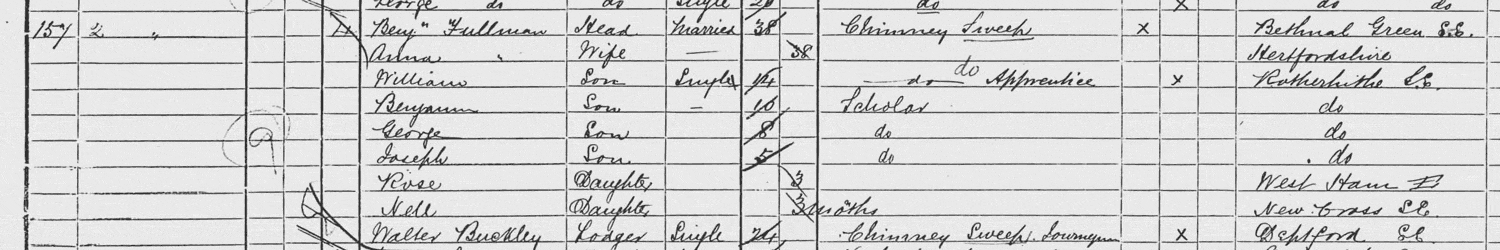 George do do Single do x do do
157 2 " Benj" Fullman Head Married 38 Chimney Sweep x Bethnal Green S.E.
Anna " Wife — 38 Hertfordshire
William Son Single 14 do do Apprentice x Rotherhithe S.E.
Benjamin Son — 10 Scholar do
George Son 8 do do
Joseph Son 5 do do
Rose Daughter 3 West Ham E
Nell Daughter 3 moths New Cross S.E.
Walter Buckley Lodger Single 24 Chimney Sweep Journeyman x Deptford S.E.